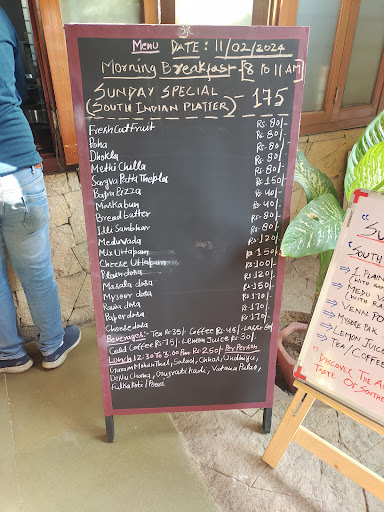 Menu DATE: 11/02/2024
Morning Breakfast - [8 to 11 AM
SUNDAY SPECIAL
(SOUTH INDIAN PLATTER) - 175
Fresh Cut Fruit Rs. 80/-
Poha Rs. 80/-
Dhokla Rs. 80/-
Methi Chilla Rs. 80/-
Rs. 150/-
Rs. 40/-
Maska bun Rs. 40/-
Bread butter Rs. 80/-
Illi Sambhar Rs. 80/-
Meduvada Rs. 120/-
Mix Uttapam Rs. 150/-
Cheese Uttapam Rs. 100/-
Plain dosa Rs. 120/-
Masala dosa Rs. 150/-
Mysoor dosa Rs. 170/-
Rava dosa Rs. 170/-
Paper dosa Rs. 170/-
Cheese dosa
Beverages:- Tea Rs. 35/- Coffee Rs. 45/- Lassi
Cold Coffee Rs. 75/- Lemon Juice Rs. 30/-
Lunch 12:30 To 3:00 Pm Rs. 250/- Per Person
Mohanthal, Salad, Chhas, Undhiyu,
Chawa, Gujrati Kadi, Vatana Pulao,
Fulka Roti / Poori
"SU
"SOUTH
→ 1 PLA
MEDU
VENN PO
→ MYSORE PAK
→ LEMON JUIC
→ TEA / COFFEE
"DISCOVER THE A
TASTE OF SOUTH